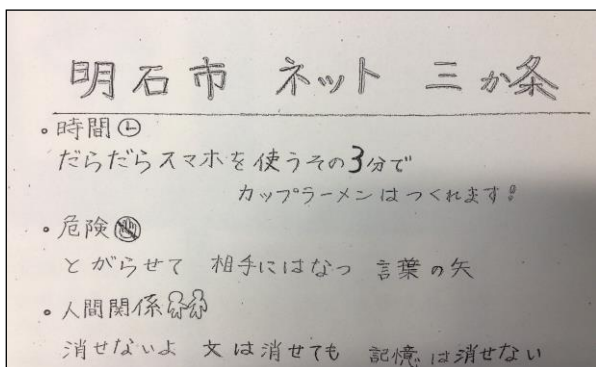 明石市 ネット 三か条
・時間
だらだらスマホを使うその3分で
カップラーメンはつくれます!
・危険
とがらせて 相手にはなつ 言葉の矢
・人間関係
消せないよ 文は消せても 記憶は消せない